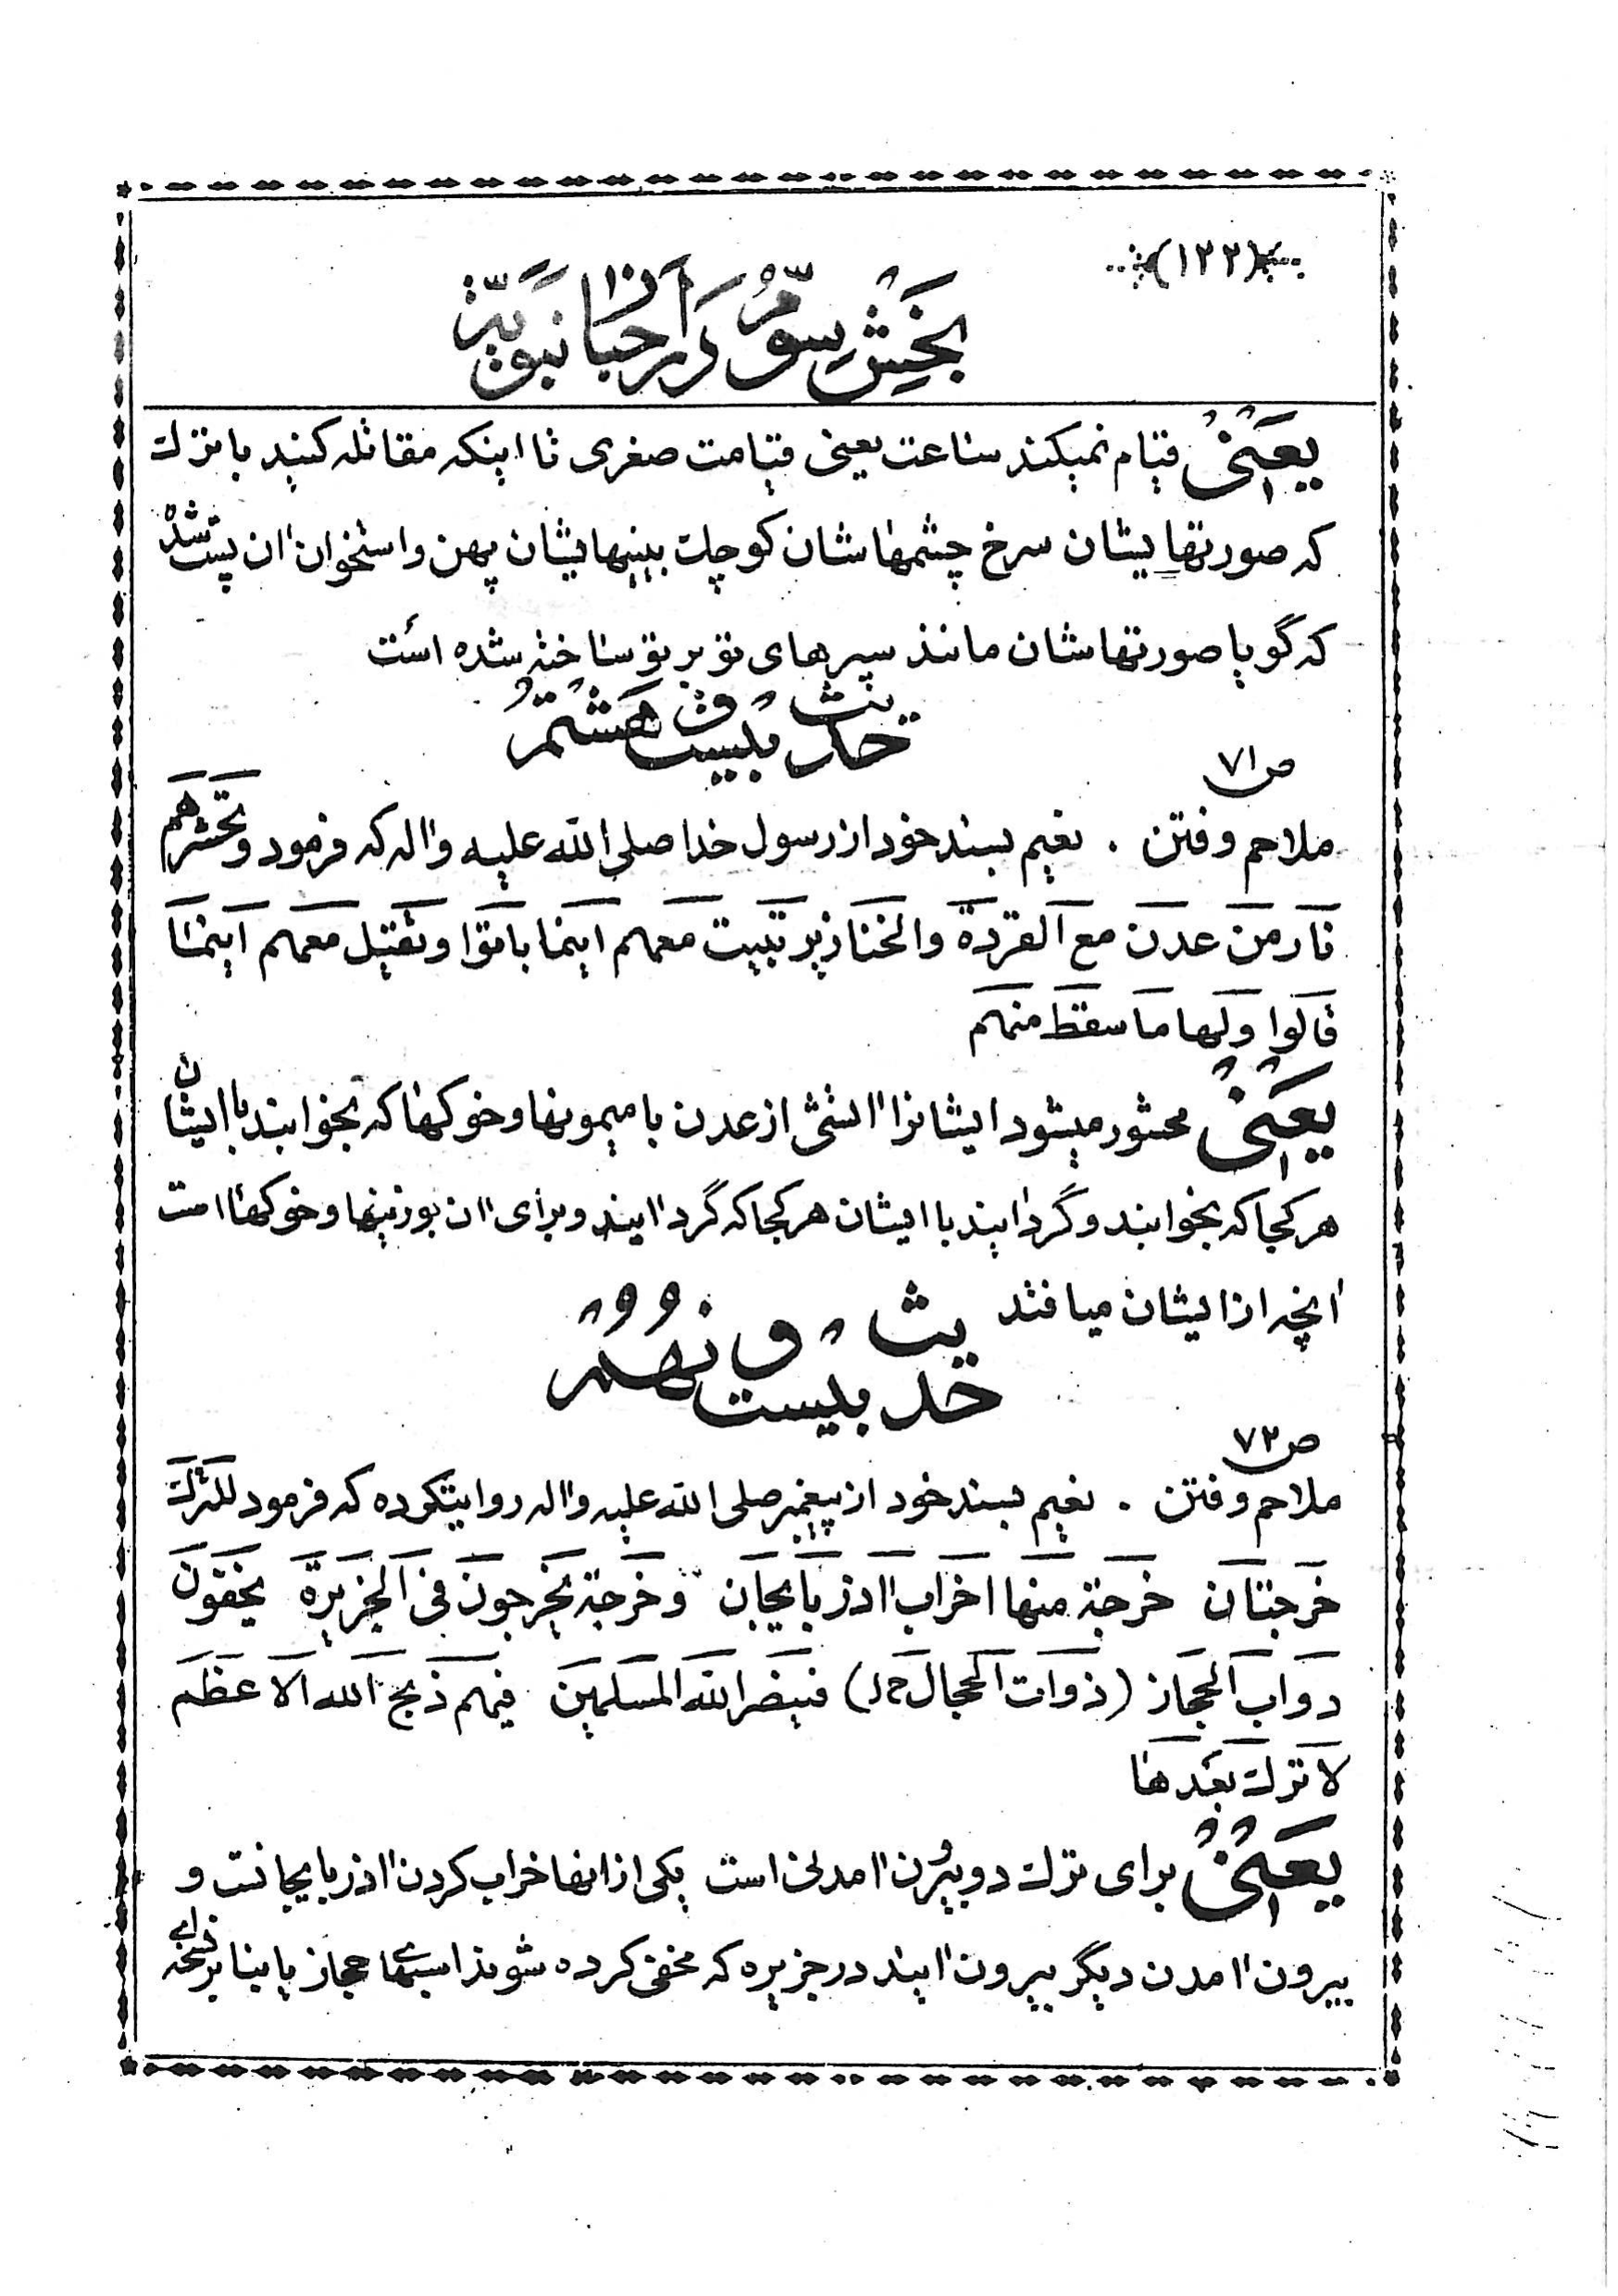 (۱۲۲)
بخش سوم در اخبار نبویّه
یعنی قیام نمیکند ساعت یعنی قیامت صغری تا اینکه مقاتله کنید با ترک
که صورتهایشان سرخ چشمهاشان کوچک بینیهایشان پهن و استخوان آن پست شده
که گویا صورتهاشان مانند سپرهای تو بر تو ساخته شده است
حدیث بیست و هشتم
ص ۷۱
ملاحم و فتن . نعیم بسند خود از رسول خدا صلی الله علیه و آله که فرمود و تحشرهم
نار من عدن مع القردة والخنازیر تبیت معهم اینما باتوا و تقیل معهم اینما
قالوا و لها ما سقط منهم
یعنی محشور میشود ایشانرا آتشی از عدن با میمونها و خوکها که بخوابند با ایشان
هر کجا که بخوابند و گرد آیند با ایشان هر کجا که گرد آیند و برای آن بوزینها و خوکها است
آنچه از ایشان میافتد
حدیث بیست و نهم
ص ۷۲
ملاحم و فتن . نعیم بسند خود از پیغمبر صلی الله علیه و آله روایتکرده که فرمود للترک
خرجتان خرجة منها اخراب آذربایجان و خرجة یخرجون فی الجزیرة یخفون
دواب الحجاز (ذوات الحجال خ‌ل) فینصر الله المسلمین فیهم ذبح الله الاعظم
لا ترک بعدها
یعنی برای ترک دو بیرون آمدنی است یکی از آنها خراب کردن آذربایجانست و
بیرون آمدن دیگر بیرون آیند در جزیره که مخفی کرده شوند اسبهای حجاز یا بنابر نسخه‌ای